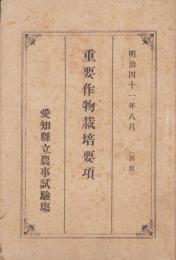 明治四十一年八月
(再版)
重要作物栽培要項
愛知縣立農事試驗塲